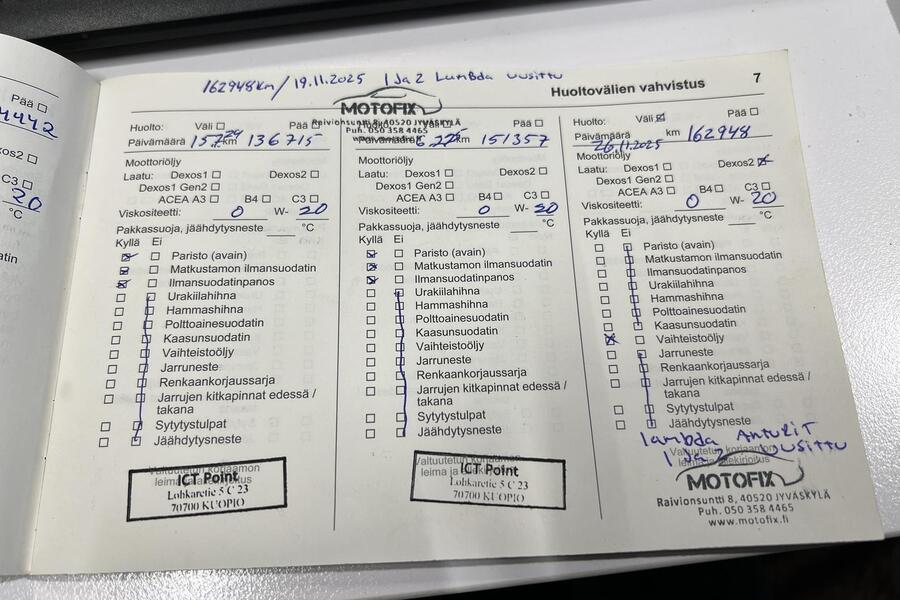 162948km / 19.11.2025 1 Ja 2 Lambda uusittu
Huoltovälien vahvistus 7
MOTOFIX
Raivionsuntti 8, 40520 JYVÄSKYLÄ
Puh. 050 358 4465
Pää
20
°C
Huolto: Väli Pää
Päivämäärä km 136715
Moottoriöljy
Laatu: Dexos1 Dexos2
Dexos1 Gen2
ACEA A3 B4 C3
Viskositeetti: 0 W- 20
Pakkassuoja, jäähdytysneste °C
Kyllä Ei
Paristo (avain)
Matkustamon ilmansuodatin
Ilmansuodatinpanos
Urakiilahihna
Hammashihna
Polttoainesuodatin
Kaasunsuodatin
Vaihteistoöljy
Jarruneste
Renkaankorjaussarja
Jarrujen kitkapinnat edessä /
takana
Sytytystulpat
Jäähdytysneste
Valtuutetun korjaamon
ICT Point
Lohkaretie 5 C 23
70700 KUOPIO
Väli Pää
Päivämäärä km 151357
Moottoriöljy
Laatu: Dexos1 Dexos2
Dexos1 Gen2
ACEA A3 B4 C3
Viskositeetti: 0 W- 20
Pakkassuoja, jäähdytysneste °C
Kyllä Ei
Paristo (avain)
Matkustamon ilmansuodatin
Ilmansuodatinpanos
Urakiilahihna
Hammashihna
Polttoainesuodatin
Kaasunsuodatin
Vaihteistoöljy
Jarruneste
Renkaankorjaussarja
Jarrujen kitkapinnat edessä /
takana
Sytytystulpat
Jäähdytysneste
Valtuutetun korjaamon
ICT Point
Lohkaretie 5 C 23
70700 KUOPIO
Huolto: Väli Pää
Päivämäärä km 162948
26.11.2025
Moottoriöljy
Laatu: Dexos1 Dexos2
Dexos1 Gen2
ACEA A3 B4 C3
Viskositeetti: 0 W- 20
Pakkassuoja, jäähdytysneste °C
Kyllä Ei
Paristo (avain)
Matkustamon ilmansuodatin
Ilmansuodatinpanos
Urakiilahihna
Hammashihna
Polttoainesuodatin
Kaasunsuodatin
Vaihteistoöljy
Jarruneste
Renkaankorjaussarja
Jarrujen kitkapinnat edessä /
takana
Sytytystulpat
Jäähdytysneste
lambda Anturit
Valtuutetun korjaamon
1 Ja 2 uusittu
leima ja allekirjoitus
MOTOFIX
Raivionsuntti 8, 40520 JYVÄSKYLÄ
Puh. 050 358 4465
www.motofix.fi